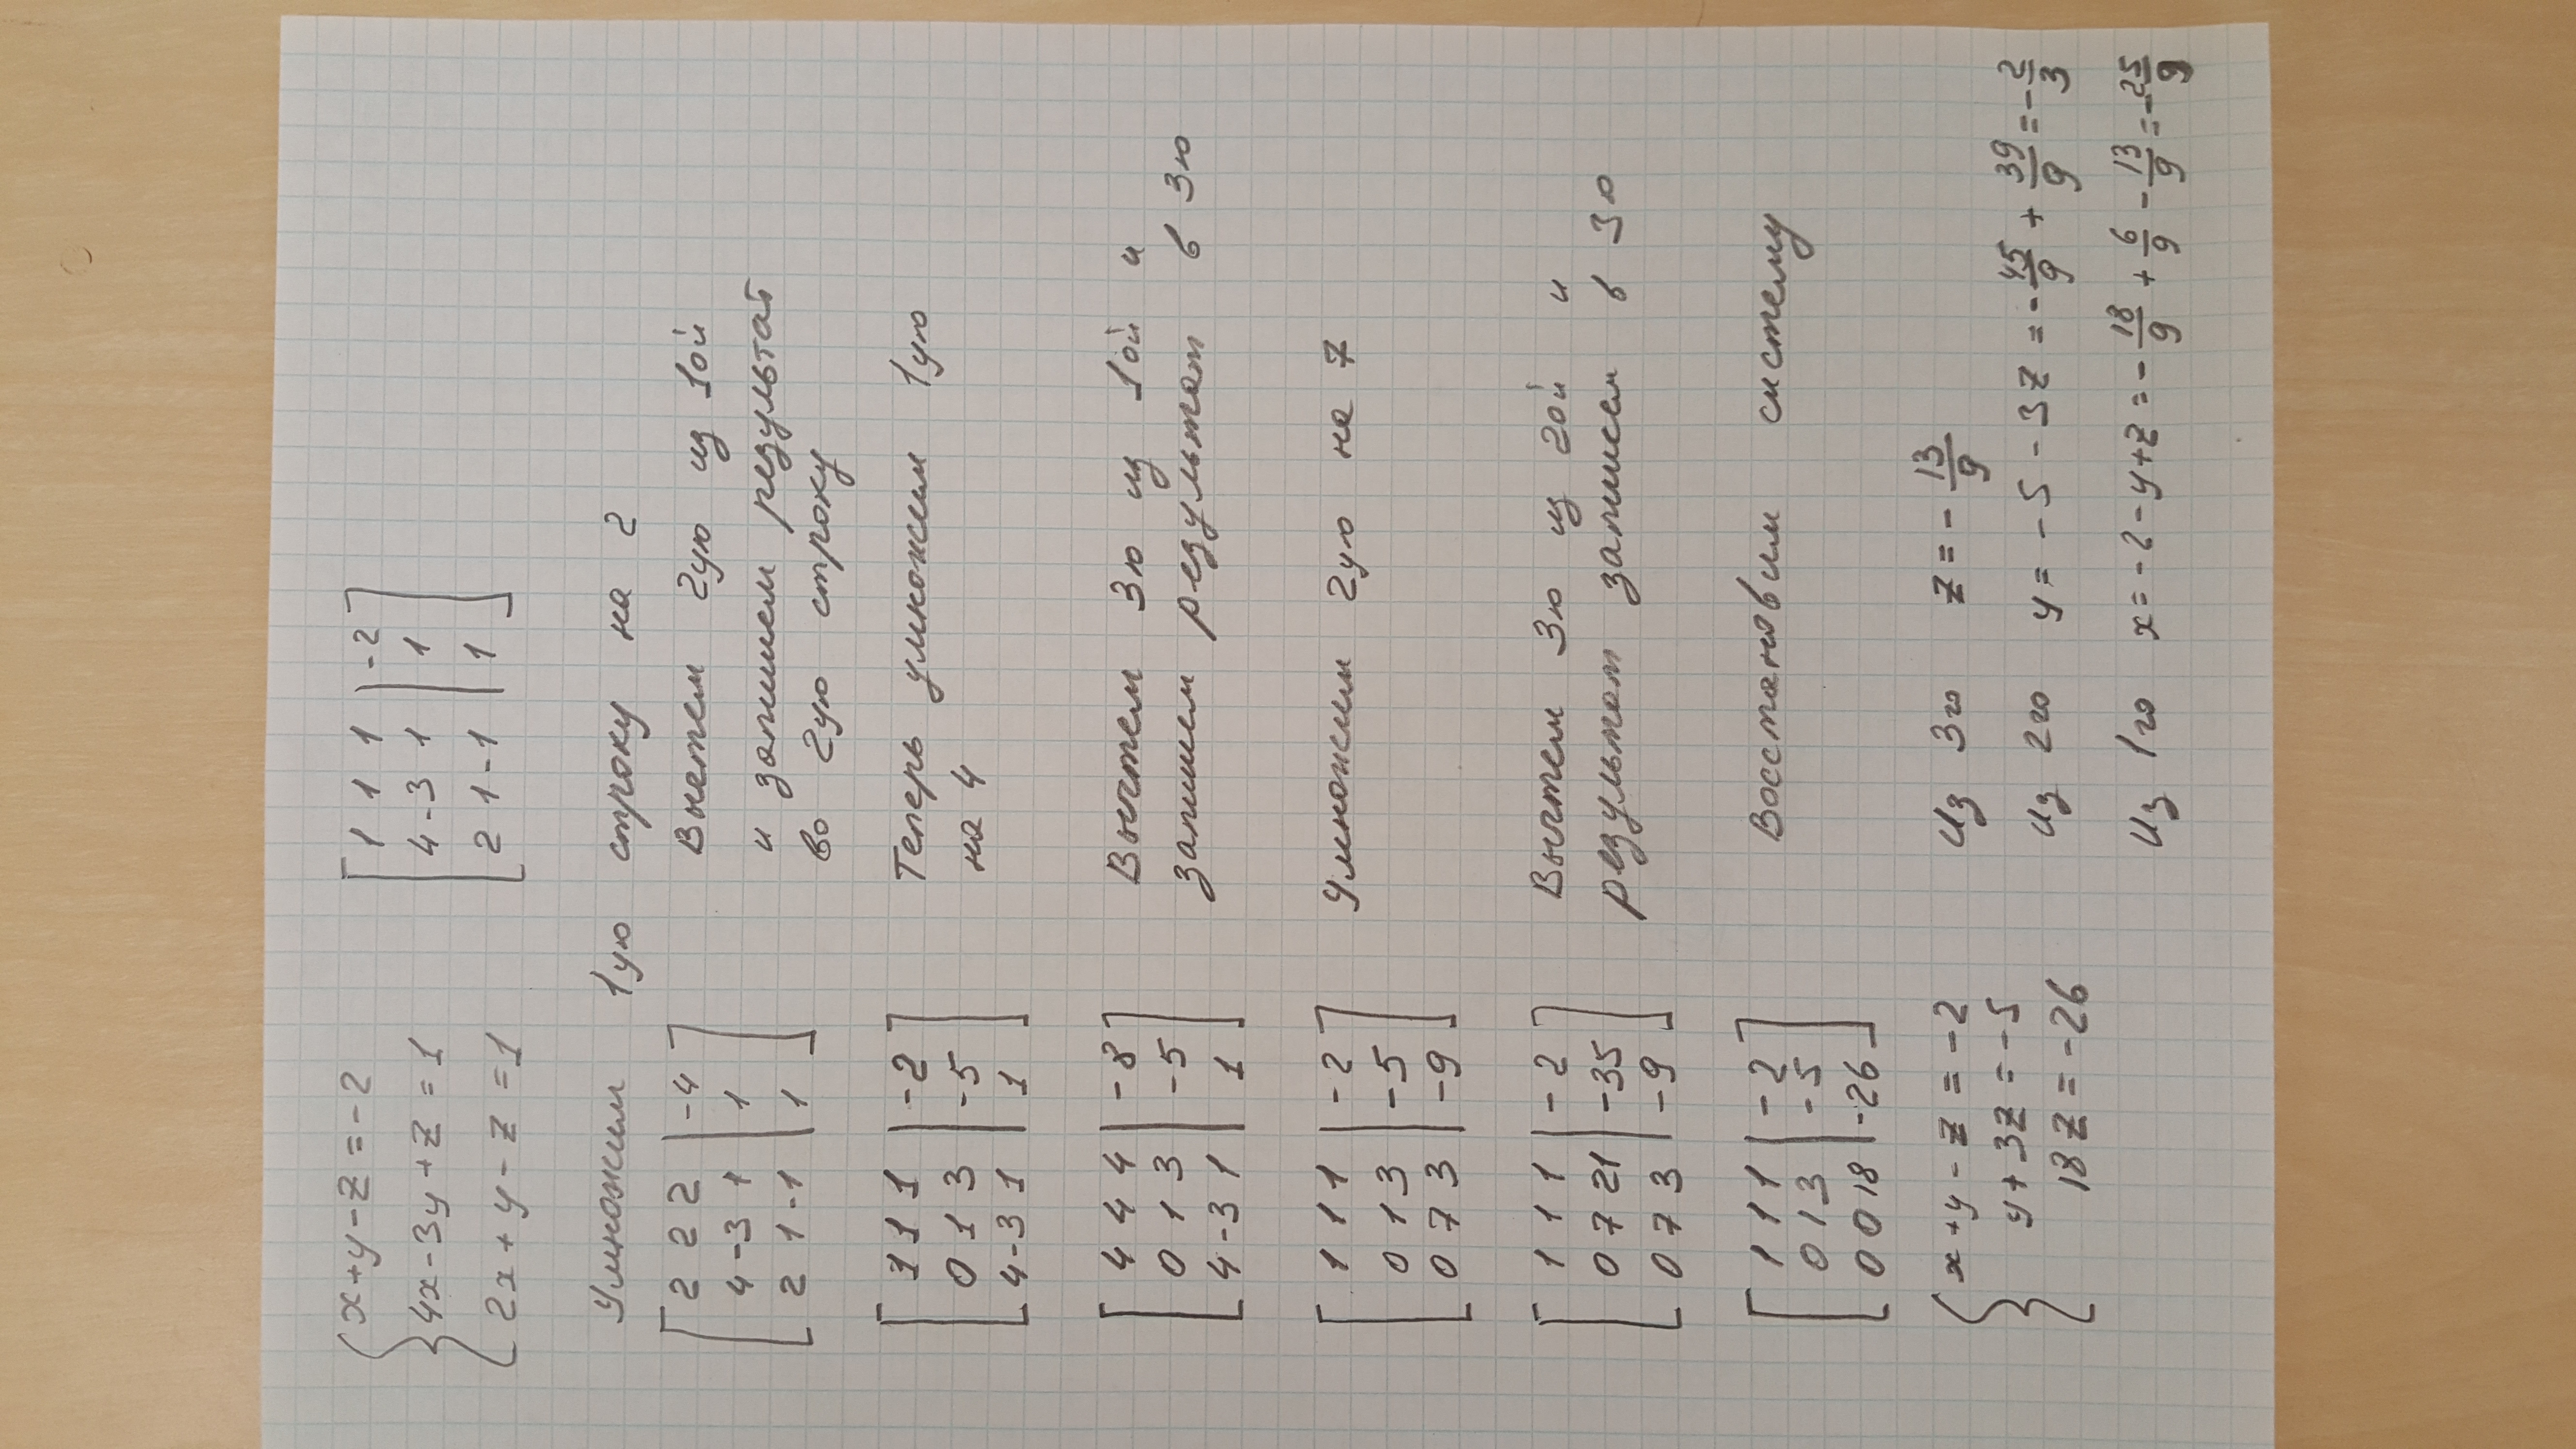 { x+y-z=-2
4x-3y+z=1
2x+y-z=1
[ 1 1 1 | -2 ]
4 -3 1 | 1
2 1 -1 | 1
Умножим 1ую строку на 2
[ 2 2 2 | -4 ]
4 -3 1 | 1
2 1 -1 | 1
Вычтем 2ую из 1ой
и запишем результат
во 2ую строку
[ 1 1 1 | -2 ]
0 1 3 | -5
4 -3 1 | 1
Теперь умножим 1ую
на 4
[ 4 4 4 | -8 ]
0 1 3 | -5
4 -3 1 | 1
Вычтем 3ю из 1ой и
запишем результат в 3ю
[ 1 1 1 | -2 ]
0 1 3 | -5
0 7 3 | -9
Умножим 2ую на 7
[ 1 1 1 | -2 ]
0 7 21 | -35
0 7 3 | -9
Вычтем 3ю из 2ой и
результат запишем в 3ю
[ 1 1 1 | -2 ]
0 1 3 | -5
0 0 18 | -26
Восстановим систему
{ x+y-z=-2
y+3z=-5
18z=-26
Из 3го z=-13/9
Из 2го y=-5-3z=-45/9+39/9=-2/3
Из 1го x=-2-y+z=-18/9+6/9-13/9=-25/9